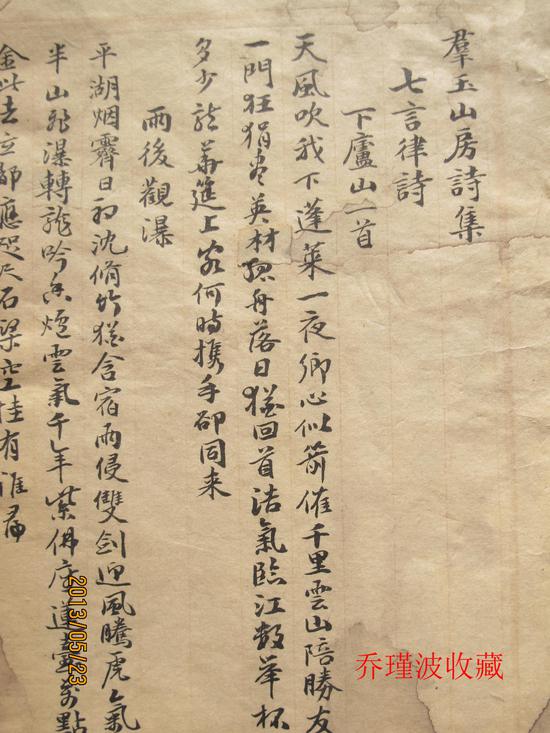 羣玉山房詩集
七言律詩
下廬山一首
天風吹我下蓬萊一夜鄉心似箭催千里雲山陪勝友
一門狂狷盡英材孤舟落日猶回首浩氣臨江數舉杯
多少龍華進上客何時携手卻同来
雨後觀瀑
平湖烟霽日初沈脩竹猶含宿雨侵雙劍迎風騰虎氣
半山飛瀑轉龍吟香爐雲氣千年紫佛座蓮臺萬點
金此去立都應咫尺石梁空挂有誰尋
2013/05/23
乔瑾波收藏